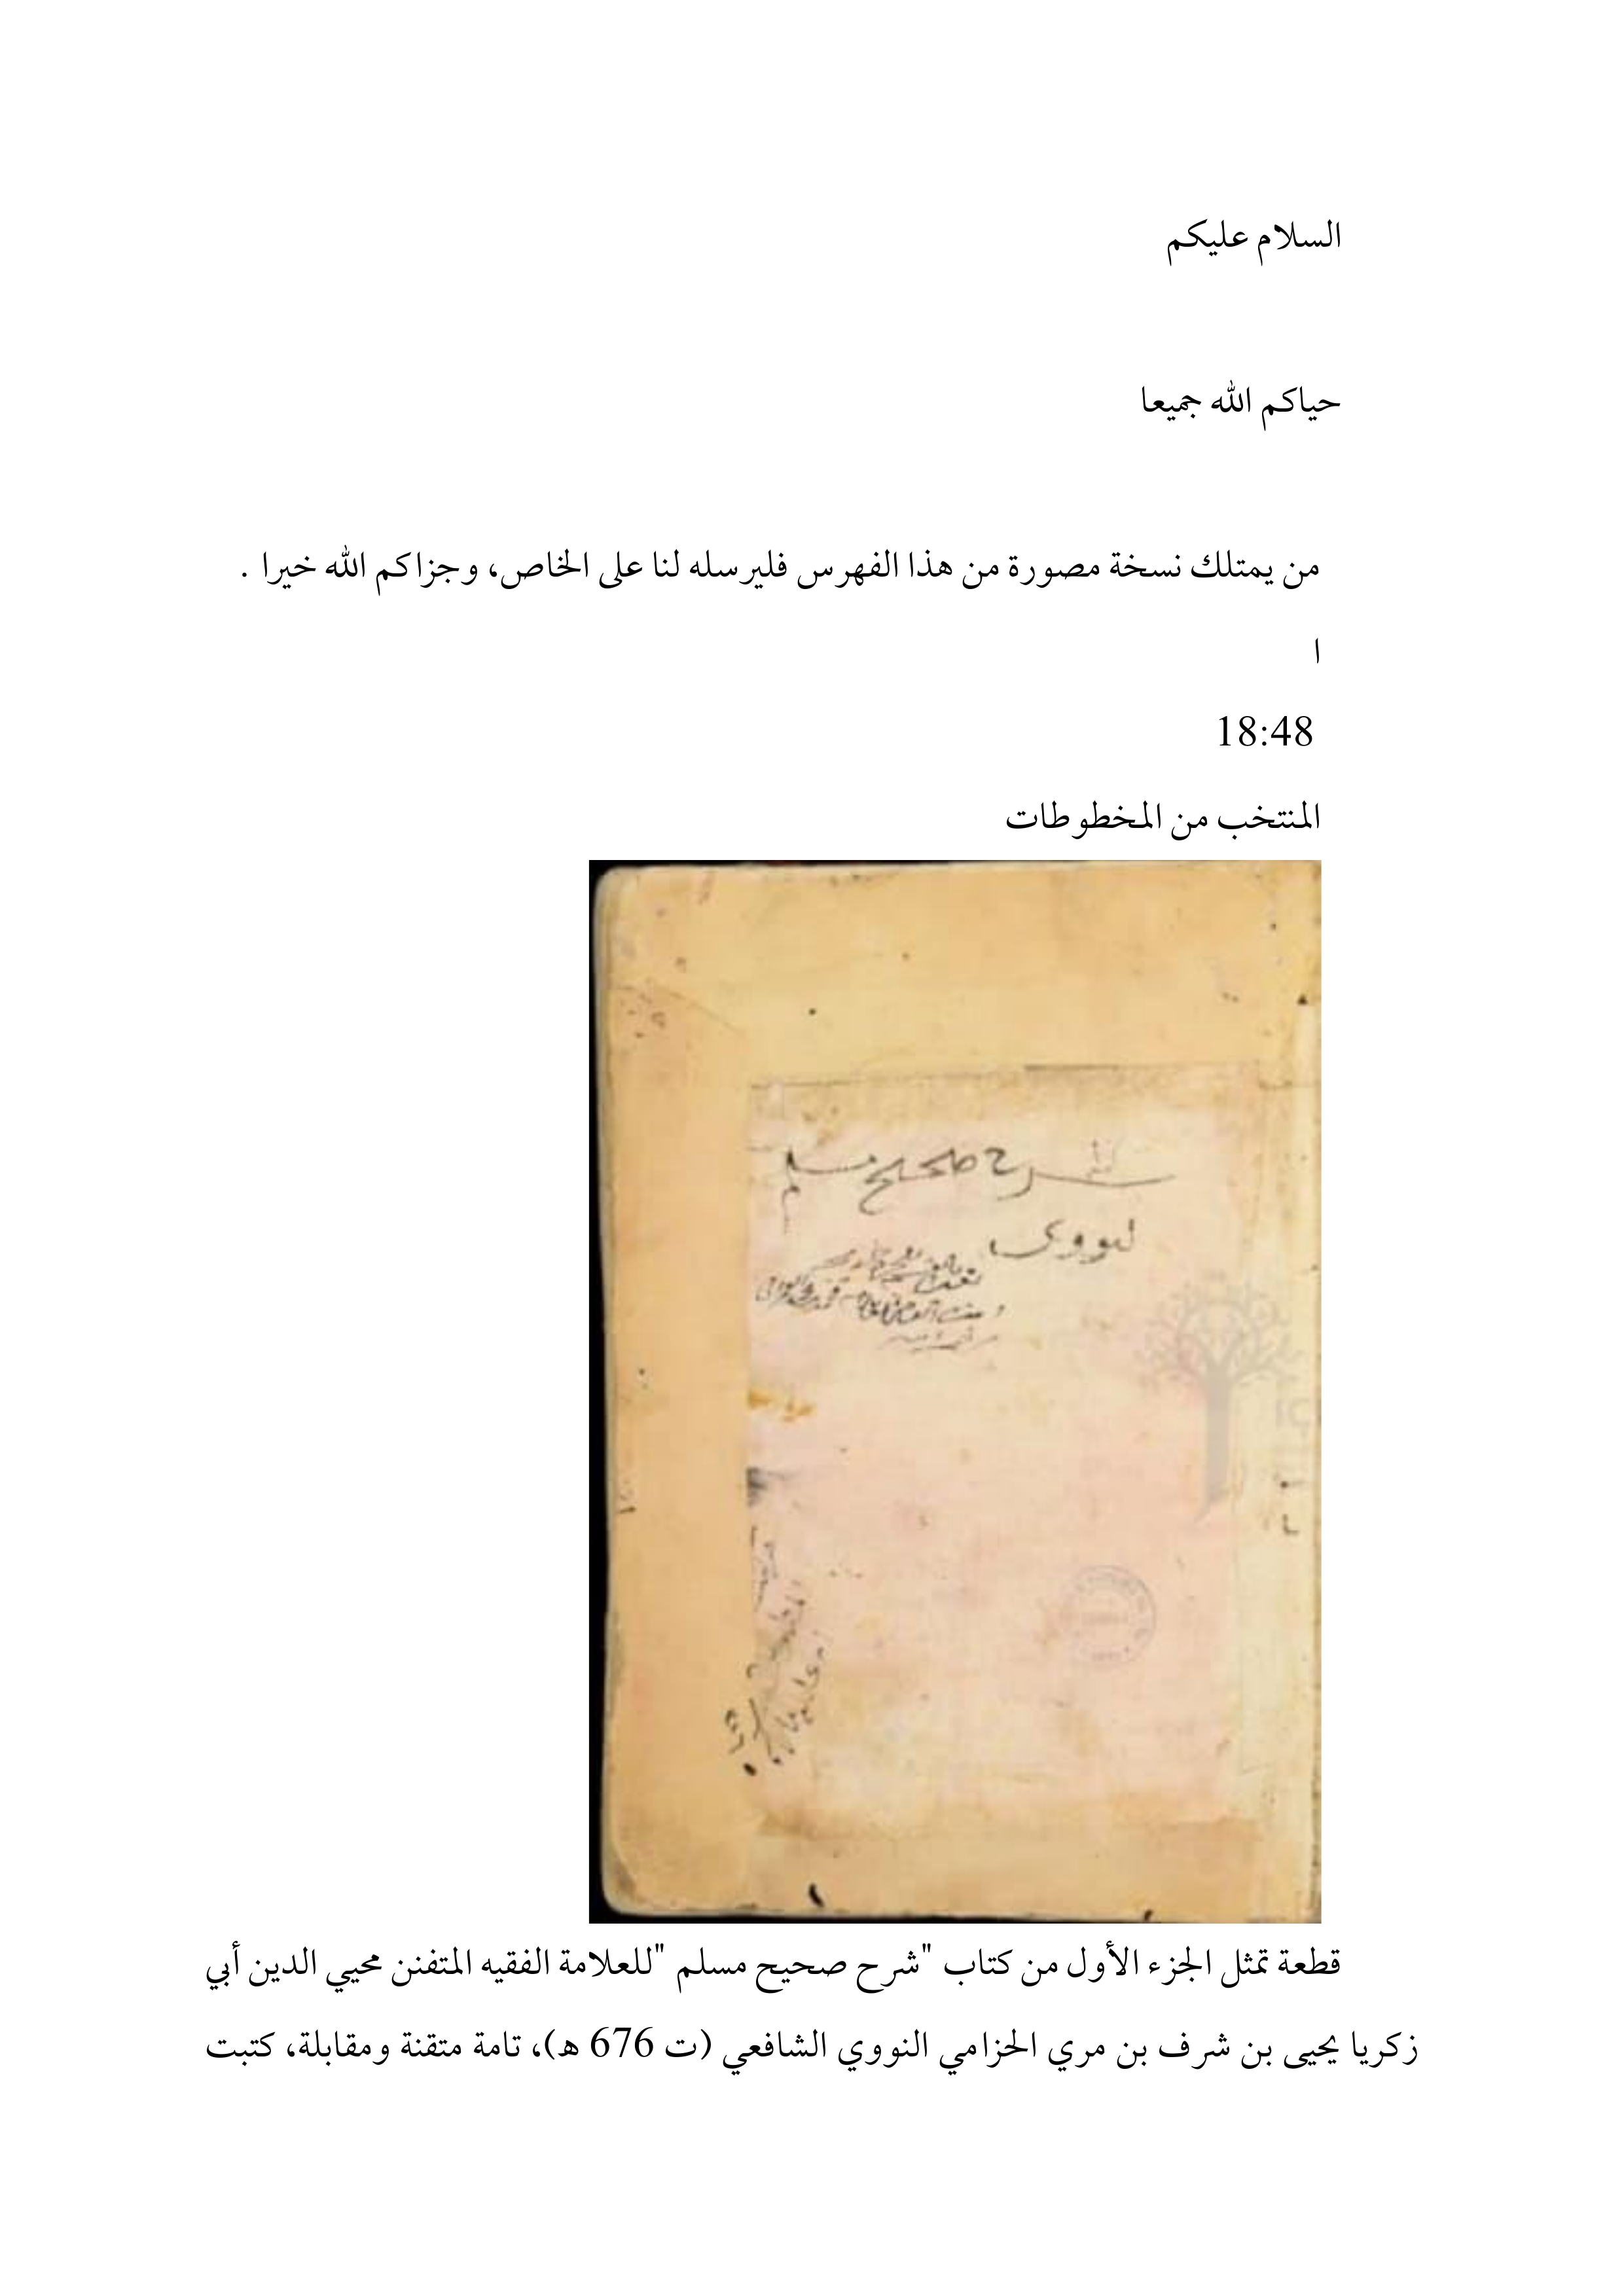 السلام عليكم
حياكم الله جميعا
من يمتلك نسخة مصورة من هذا الفهرس فليرسله لنا على الخاص، وجزاكم الله خيرا .
ا
18:48
المنتخب من المخطوطات
شرح صحيح مسلم
لنووى
قطعة تمثل الجزء الأول من كتاب "شرح صحيح مسلم "للعلامة الفقيه المتفنن محيي الدين أبي
زكريا يحيى بن شرف بن مري الحزامي النووي الشافعي (ت 676 ه)، تامة متقنة ومقابلة، كتبت